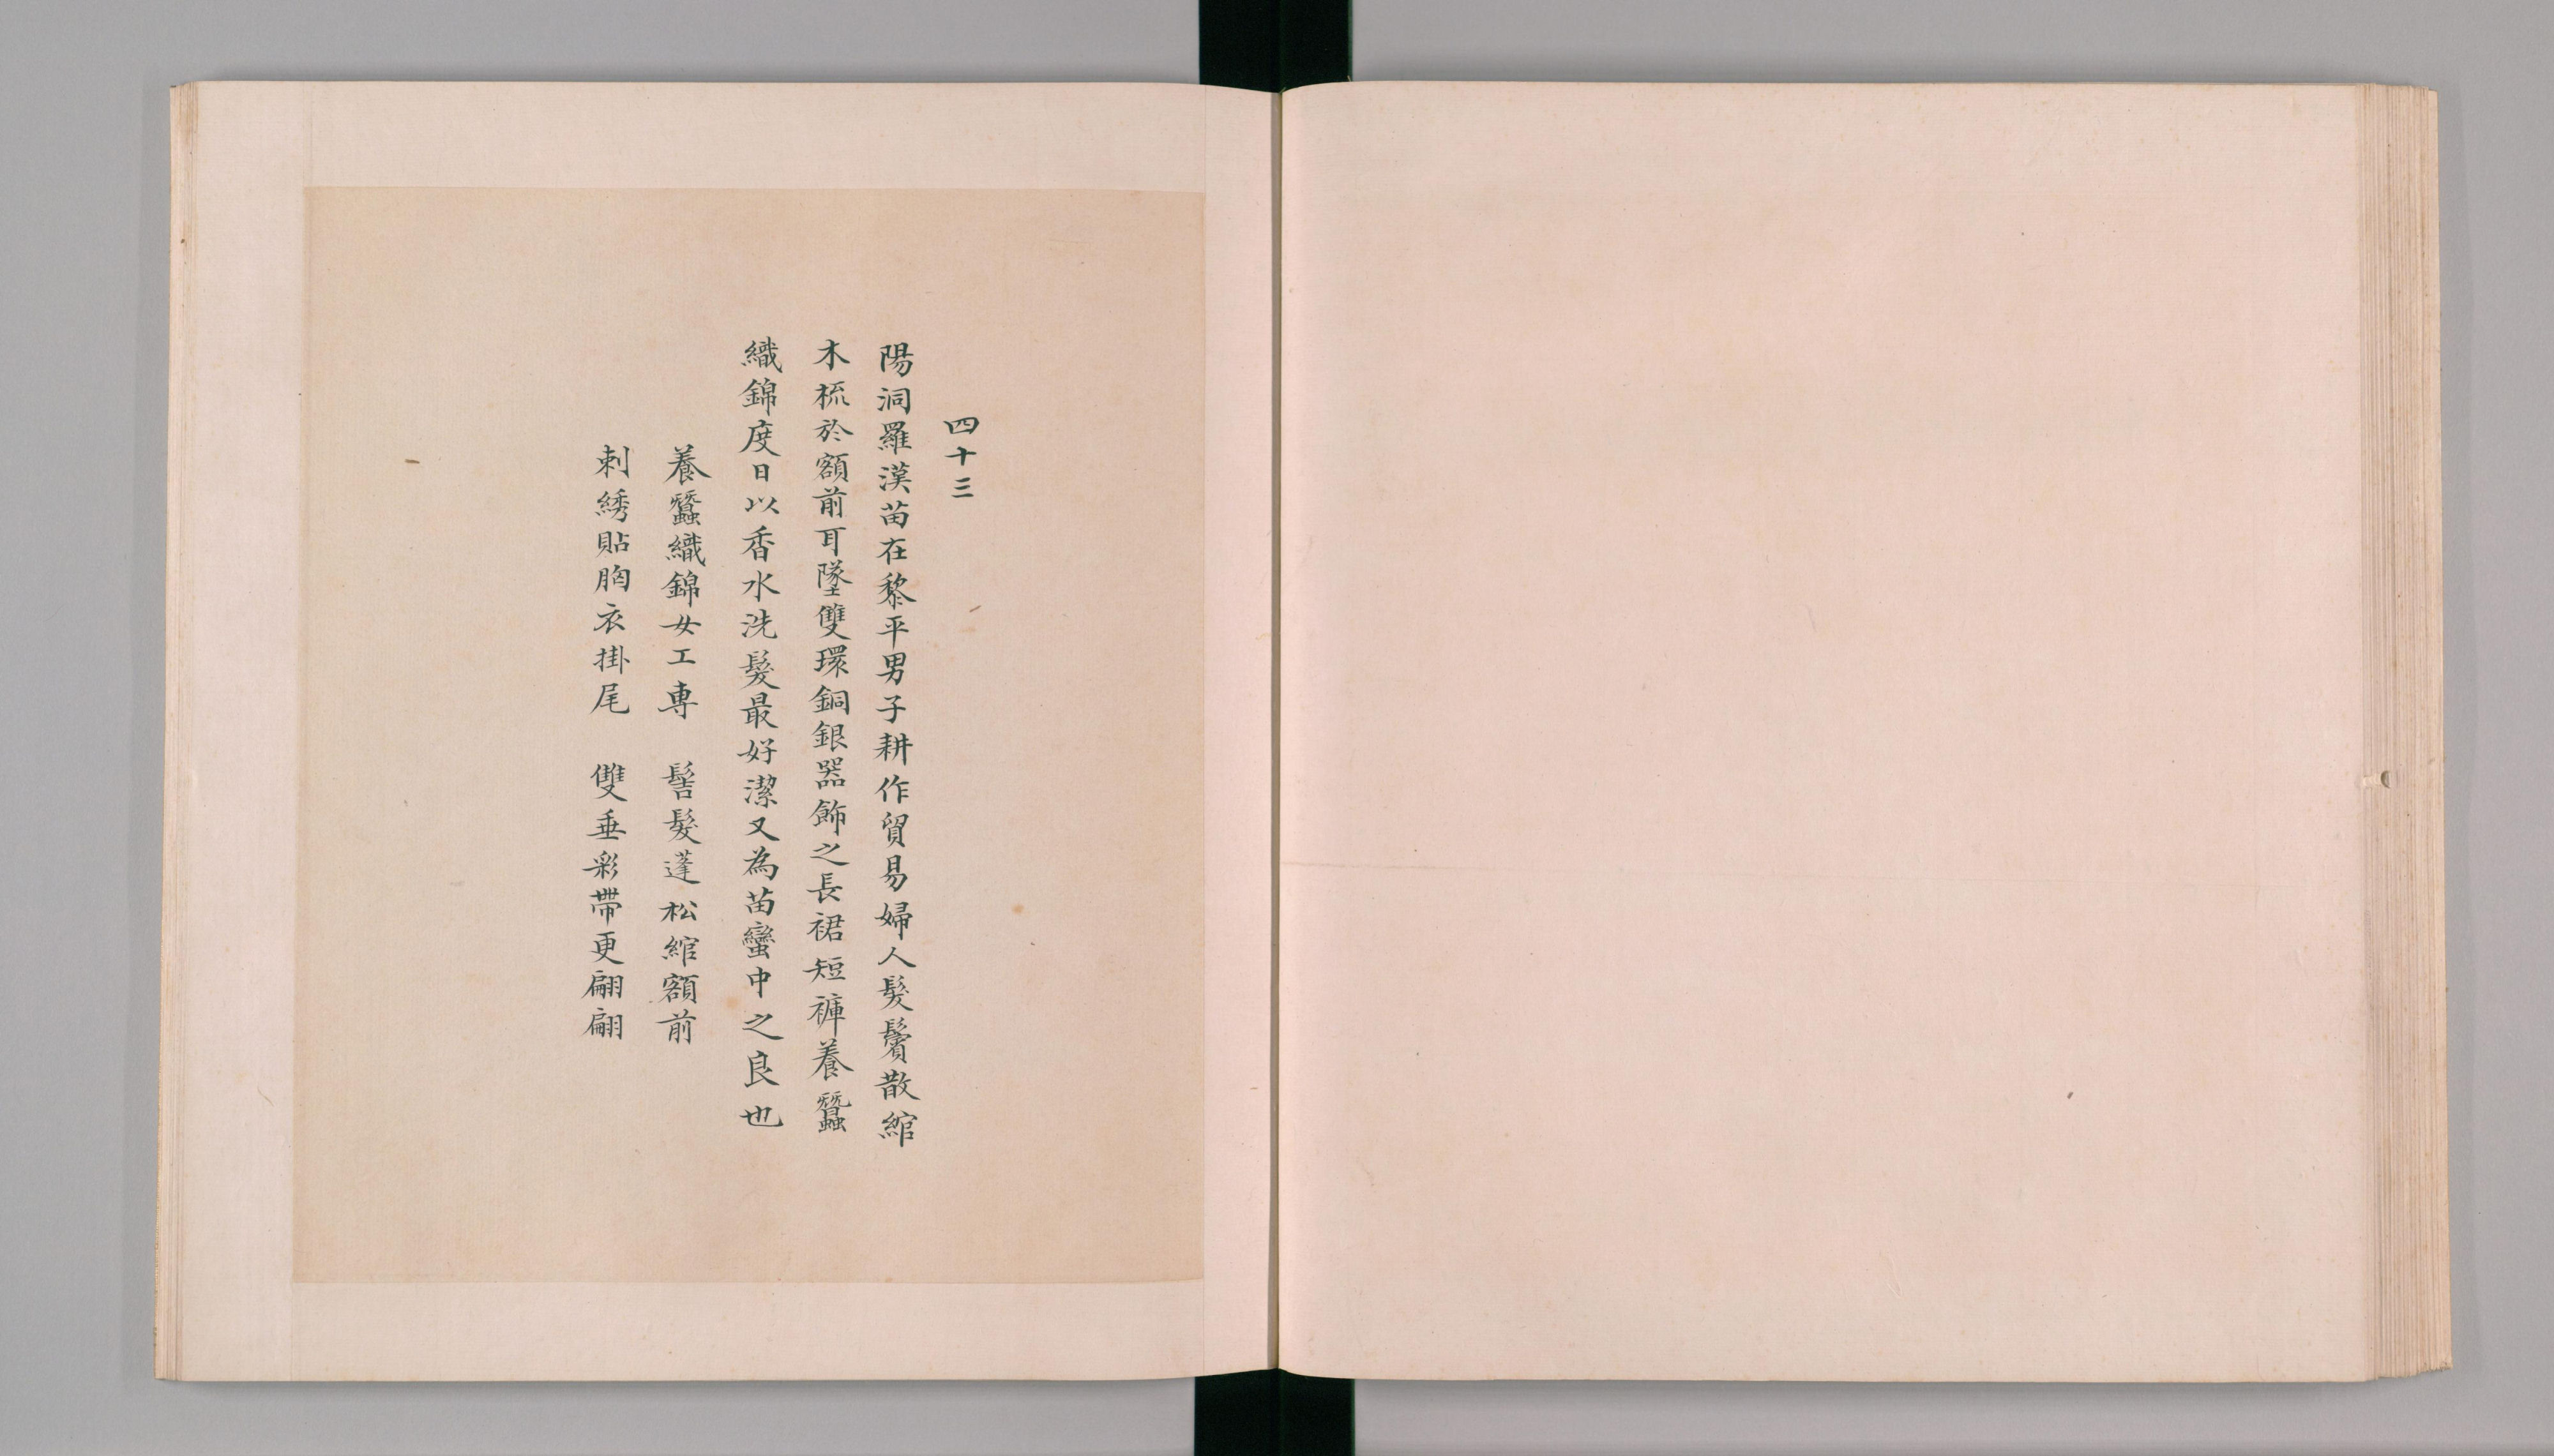 四十三
陽洞羅漢苗在黎平男子耕作貿易婦人髮鬢散綰
木梳於額前耳墜雙環銅銀器飾之長裙短褲養蠶
織錦度日以香水洗髮最好潔又為苗蠻中之良也
養蠶織錦女工專　髻髮蓬松綰額前
刺綉貼胸衣掛尾　雙垂彩帶更翩翩